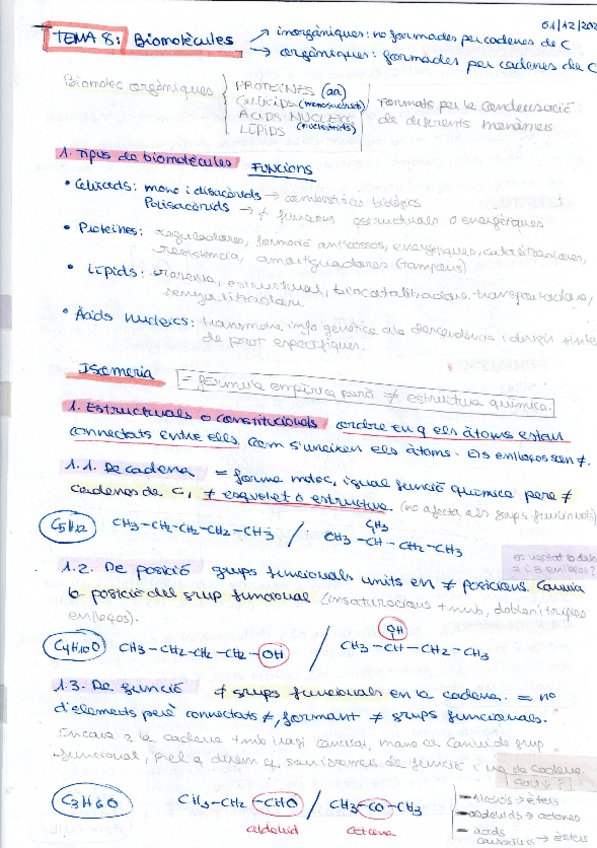 01/12/202
TEMA 8: Biomolècules → inorgàniques: no formades per cadenes de C
→ orgàniques: formades per cadenes de C
Biomolec orgàniques PROTEÏNES (aa)
GLÚCIDS (monosacàrids)
ÀCIDS NUCLEIC
LÍPIDS (nucleòtids)
Formats per la condensació
de diferents monòmers
1. Tipus de biomolècules FUNCIONS
• Glúcids: mono i disacàrids → combustibles biològics
Polisacàrids → ≠ funcions estructurals o energètiques
• Proteïnes: reguladores, formació anticossos, energètiques, catalitzadores,
resistència, amortiguadores (tampons)
• Lípids: reserva, estructural, biocatalitzadora, transportadora,
• Àcids nucleics: transmetre info genètica a la descendència i dirigir
de prot específiques.
Isomeria = fórmula empírica però ≠ estructura química.
1. Estructurals o constitucionals ordre en q els àtoms estan
connectats entre ells. Com s'uneixen els àtoms. Els enllaços són ≠.
1.1. De cadena = forma moloc, igual funció química però ≠
cadenes de C, ≠ esquelet o estructura. (no afecta als grups funcionals)
C5H12 CH3-CH2-CH2-CH2-CH3 / CH3-CH-CH2-CH3
CH3
1.2. De posició grups funcionals units en ≠ posicions. Canvia
la posició del grup funcional (insaturacions tmb, dobles i triples
enllaços).
C4H10O CH3-CH2-CH2-CH2-OH / CH3-CH-CH2-CH3
OH
1.3. De funció ≠ grups funcionals en la cadena. = no
d'elements però connectats ≠, formant ≠ grups funcionals.
Encara q la cadena tmb hagi canviat, mana el canvi de grup
funcional, x el q direm q són isòmers de funció i no de cadena
cert?
C3H6O CH3-CH2-CHO / CH3-CO-CH3
aldehid cetona
- Alcohols → èters
- aldehids → cetones
- àcids
carboxílics → èsters